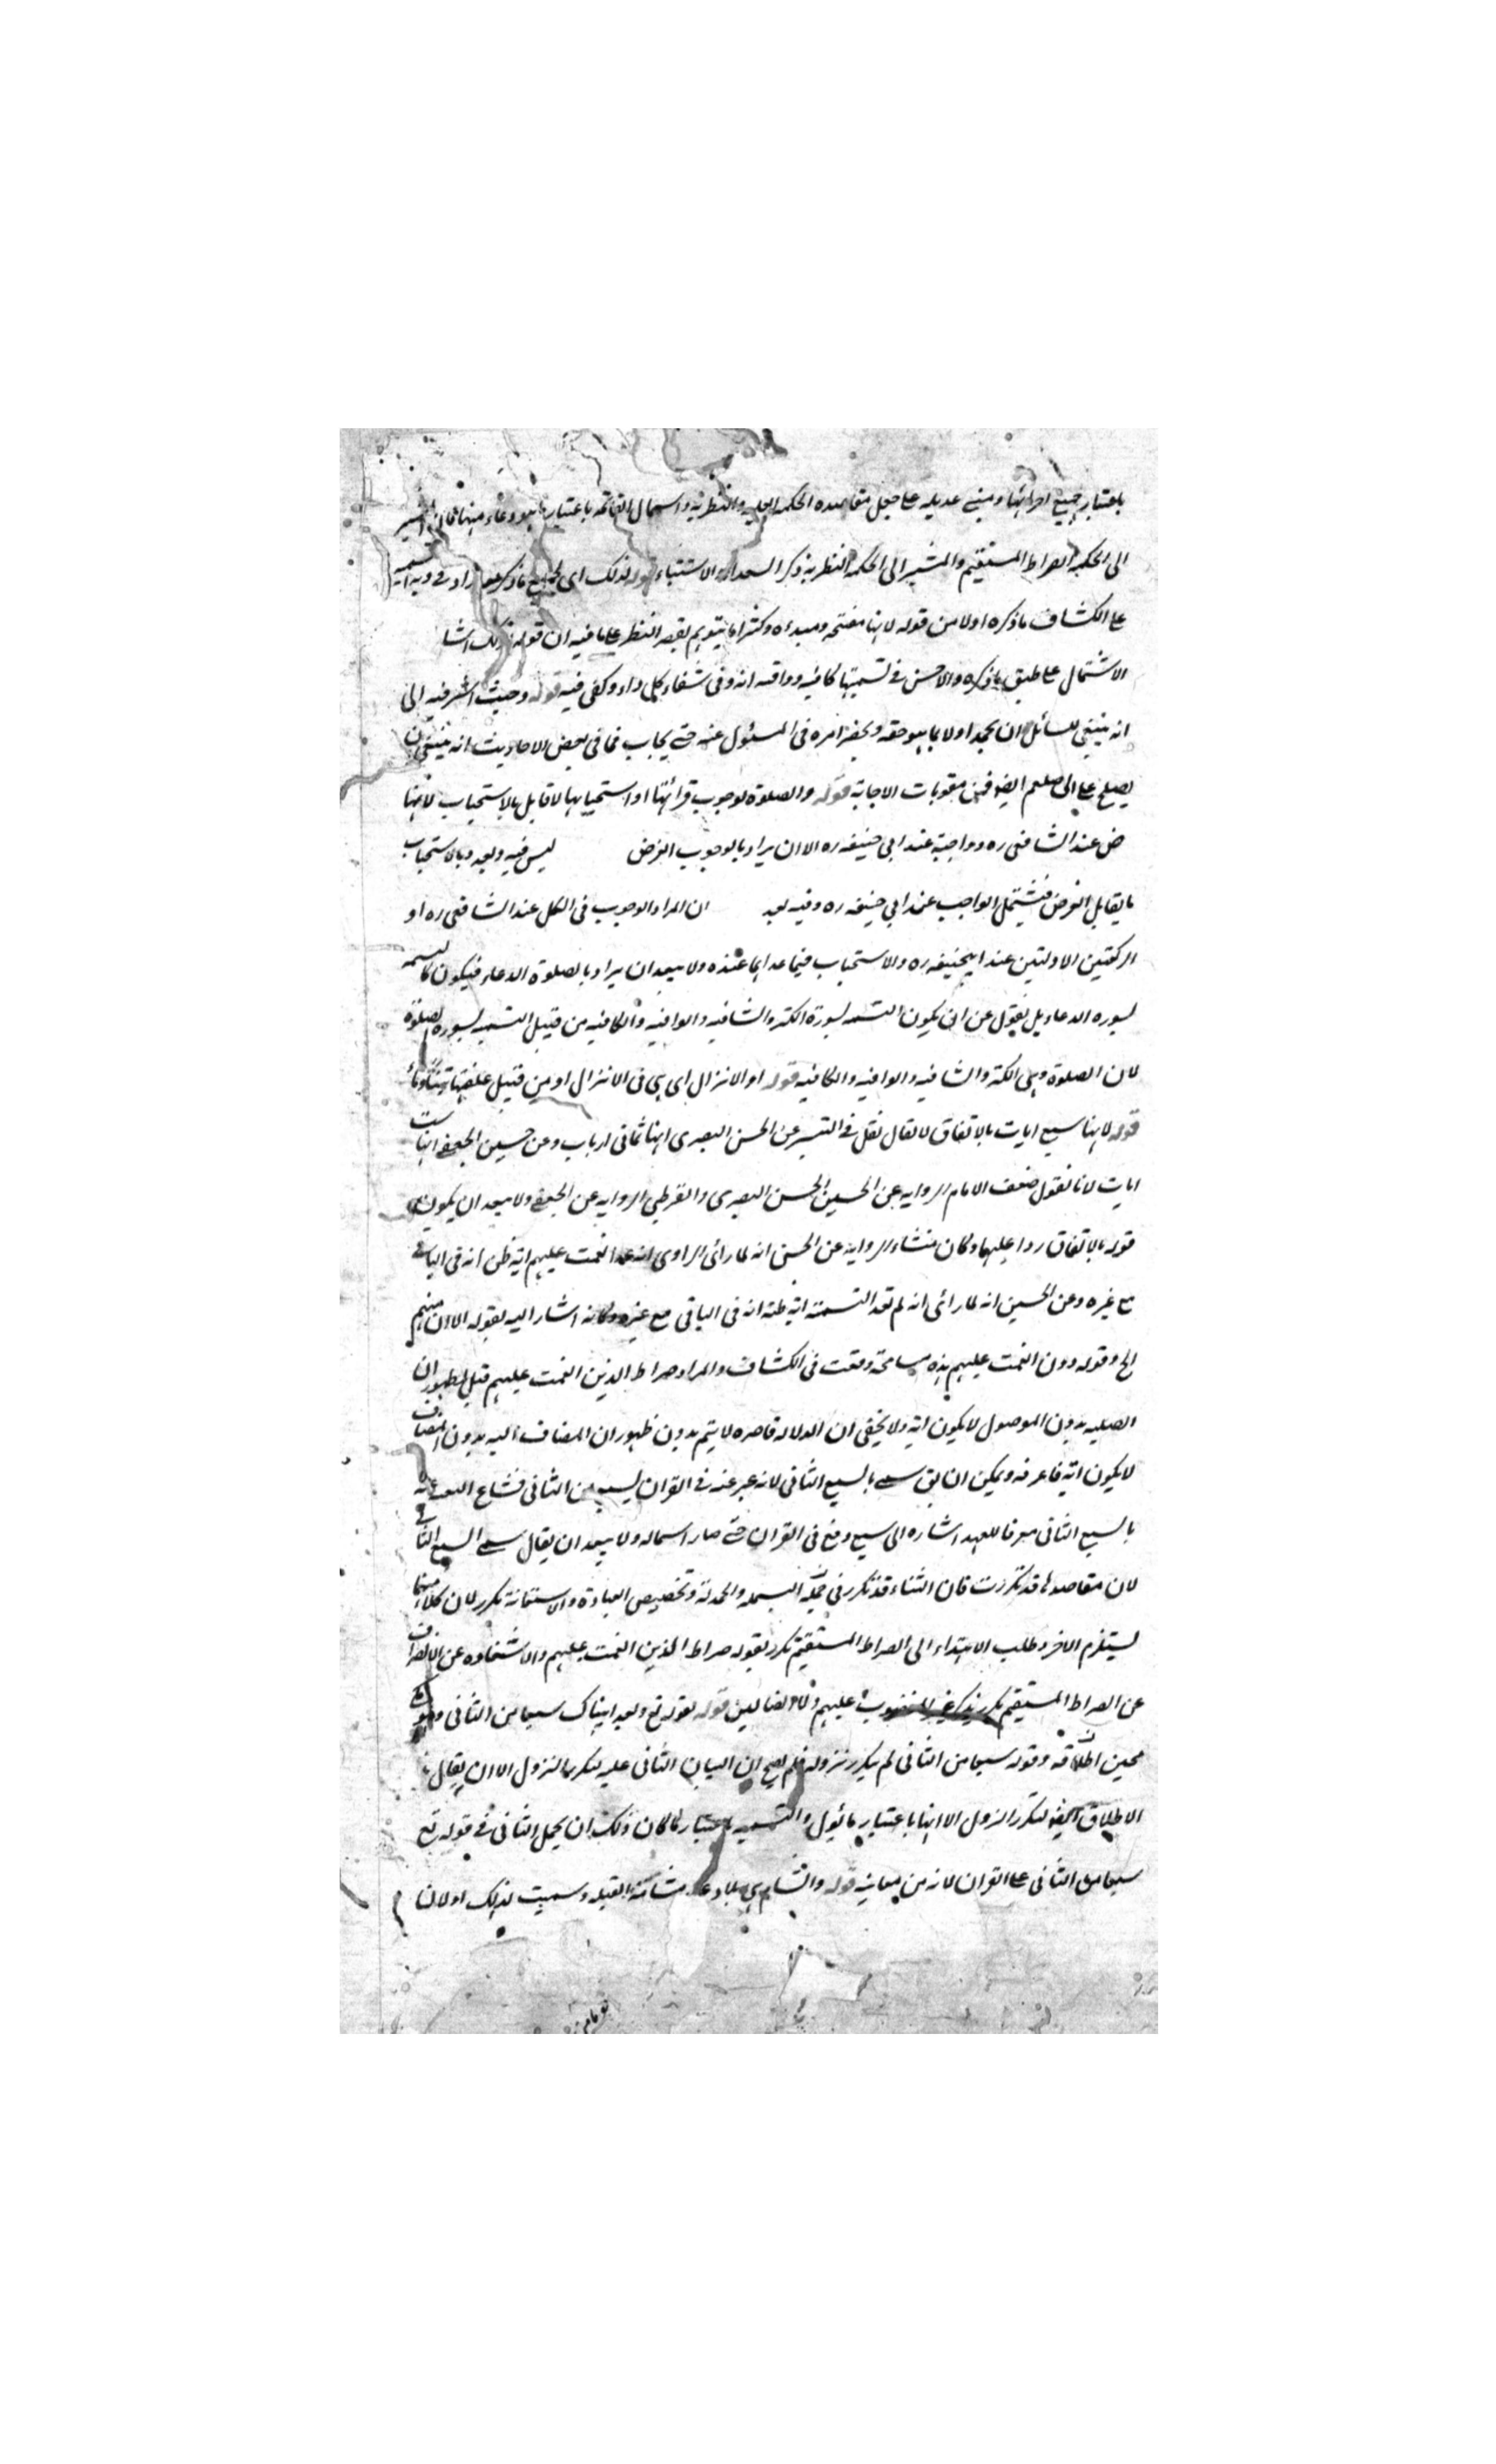 باعتبار جميع اجزائها ومبنى عديله على جعل مقاصده الحكمه العمليه والنظريه واشتمال الفاتحه باعتبار ما هو دعاء منها فان المشير
الى الحكمه الصراط المستقيم والمشير الى الحكمه النظريه ذكر السعداء والاشقياء قوله لذلك اى لجميع ما ذكر
على الكشاف ما ذكره اولا من قوله لانها مفتتحه ومبدءه وكثيرا ما يتوهم بقصر النظر على ما فيه ان قوله لذلك اشا
الاشتمال على طبق ما ذكره والاحسن فى تسميتها كافيه وواقيه انه وفى شفاء لكل داء وكفى فيه قوله وحيث اشر فيه الى
انه ينبغى للسائل ان يحمد اولا بما هو حقه ويحضر امره فى المسئول عنه حتى يجاب فما فى بعض الاحاديث انه ينبغى ان
يصلى على النبى صلعم ايضا فمن مقربات الاجابة قوله والصلوة لوجوب قرائتها او استحبابها لا قايل بالاستحباب لانها
ض عند الشافعى ره وواجبة عند ابى حنيفه ره الا ان يراد بالوجوب الفرض ليس فيه وبعد وبالاستحباب
ما يقابل الفرض فيشتمل الواجب عند ابى حنيفه ره وفيه بعد ان المراد الوجوب فى الكل عند الشافعى ره او
الركعتين الاولتين عند ابيحنيفه ره والاستحباب فيما عداهما عنده ولا يبعد ان يراد بالصلوة الدعاء فيكون كالتسميه
لسوره الدعا بل نقول عن ان يكون التسميه لسورة الكنز والشافيه والوافيه والكافيه من قبيل التسميه لسورة الصلوة
لان الصلوة وهى الكنز والشافيه والوافيه والكافيه قوله او الانزال اى هى فى الانزال او من قبيل علفتها تبنا وماء
قوله لانها سبع ايات بالاتفاق لا يقال نقل فى التيسير عن الحسن البصرى انها ثمانى ايات وعن حسين الجعفى انها ست
ايات لانا نقول ضعف الامام الروايه عن الحسين الحسن البصرى والقرطبى الروايه عن الجعفى ولا يبعد ان يكون
قوله بالاتفاق ردا عليهما وكان منشاء الروايه عن الحسن انه لما رائ الراوى انه عد انعمت عليهم اية ظن انه فى الباقى
مع غيره وعن الحسين انه لما رائ انه لم تعد التسمية اية ظنه انه فى الباقى مع غيره وكانه اشار اليه بقوله الا ان منهم
الخ وقوله دون انعمت عليهم هذه مسامحة وقعت فى الكشاف والمراد صراط الذين انعمت عليهم قيل لظهور ان
الصله بدون الموصول لا يكون اية ولا يخفى ان الدلاله قاصره لا يتم بدون ظهور ان المضاف اليه بدون المضاف
لا يكون اية فاعرفه ويمكن ان يق سمى بالسبع المثانى لانه عبر عنه فى القران بسبع من المثانى فشاع التعبير عنه
بالسبع المثانى معرفا للعهد اشاره الى سبع وقع فى القران حتى صار اسما له ولا يبعد ان يقال سمى السبع المثانى
لان مقاصدها قد تكررت فان الثناء قد تكرر فى جملة البسمله والحمدلة وتخصيص العبادة والاستعانة تكرر لان كلا منهما
يستلزم الاخر وطلب الاهتداء الى الصراط المستقيم تكرر بقوله صراط الذين انعمت عليهم والاستعاذه عن الانصراف
عن الصراط المستقيم تكرر بذكر غير المغضوب عليهم ولا الضالين قوله لقوله تع ولقد اتيناك سبعا من المثانى وهو
محين اطلاقه وقوله سبعا من المثانى لم يكرر نزوله فلم يصح ان البيان المثانى عليه لتكرر النزول الا ان يقال
الاطلاق ايضا لتكرر النزول الا انها باعتبار ما يئول والتسميه باعتبار ما كان ولك ان يحمل المثانى فى قوله تع
سبعا من المثانى على القران لانه من معانيه قوله والشام هى بلاد على مشأمة القبله وسميت لذلك او لان